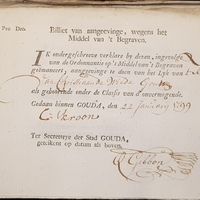 Pro Deo
Billiet van aangeevinge, wegens het
Middel van 't Begraven.
IK ondergeschreve verklare by deren, ingevolge
van de Ordonnantie op 't Middel van 't Begraven
geëmaneert, aangeevinge te doen van het Lyk van
als gehoorende onder de Classis van d'onvermogende.
Gedaan binnen GOUDA, den 22 January 1799
C: Kroon
Ter Secretarye der Stad GOUDA,
geteikent op datum als boven.